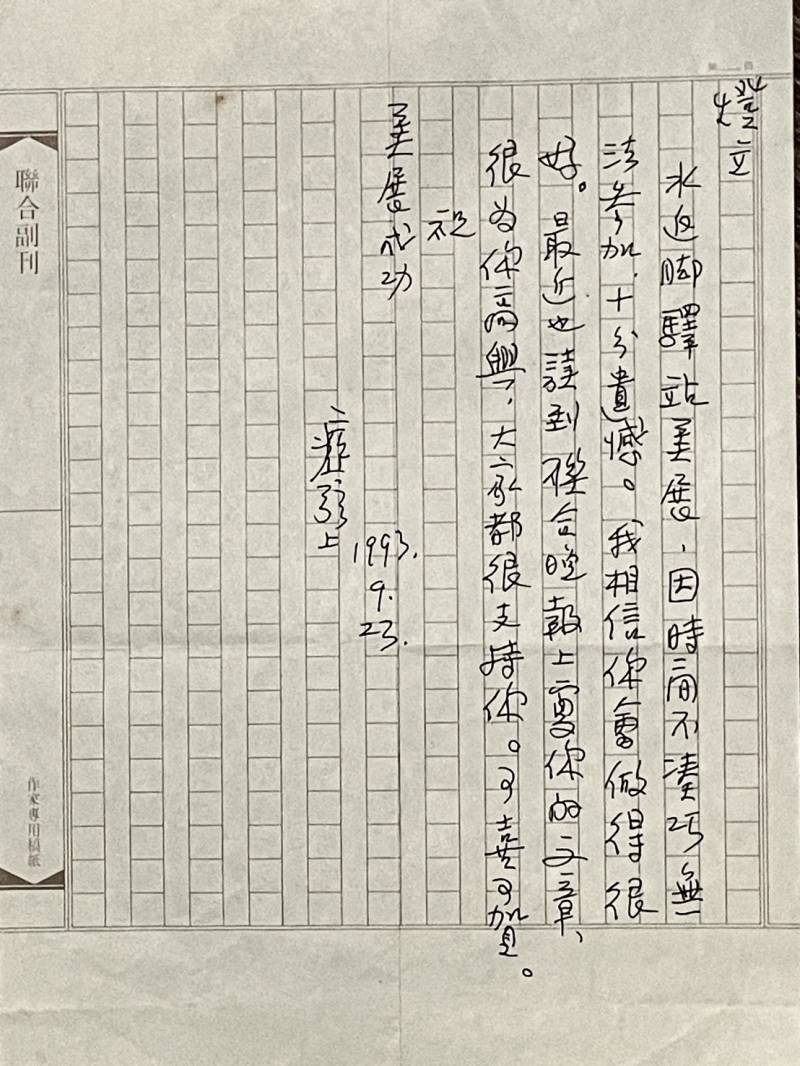 立
水返脚驛站美展,因時間不湊巧無
法參加,十分遺憾。我相信你會做得很
好。最近也讀到聯合晚報上寫你的文章,
很為你高興,大家都很支持你。可喜可賀。
祝
美展成功
1993.
9.
23.
瘂弦上
聯合副刊
作家專用稿紙